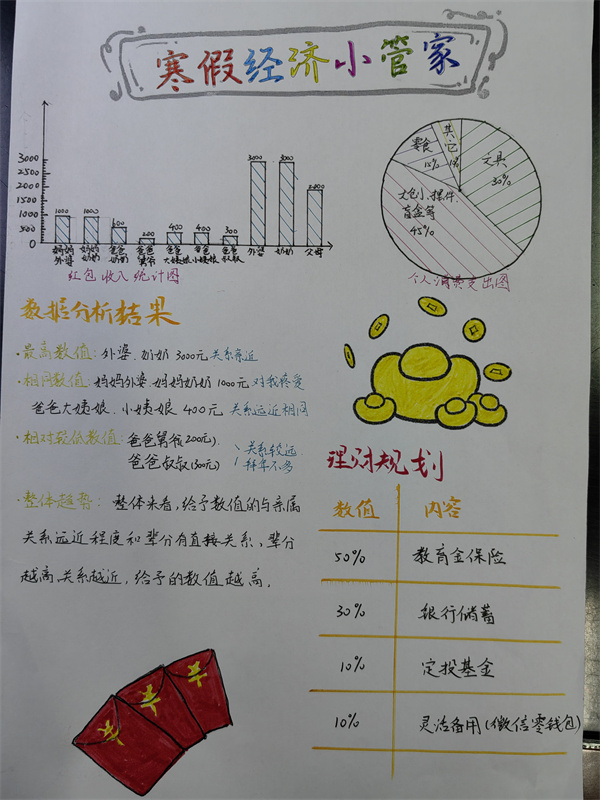 寒假经济小管家
3000
2500
2000
1500
1000
500
0
1000
1000
600
200
400
400
300
3000
3000
妈妈外婆
妈妈奶奶
爸爸奶奶
爸爸舅爷
爸爸大姨娘
爸爸小姨娘
爸爸叔叔
外婆
奶奶
父母
红包收入统计图
零食
15%
其它
文具
30%
摆件,
盲盒等
45%
个人消费支出图
数据分析结果
·最高数值:外婆、奶奶 3000元 关系亲近
·相同数值:妈妈外婆、妈妈奶奶1000元 对我疼爱
爸爸大姨娘、小姨娘 400元 关系远近相同
·相对较低数值:爸爸舅爷(200元)、关系较远
爸爸叔叔(300元) 拜年不多
·整体趋势:整体来看,给予数值的与亲属
关系远近程度和辈分有直接关系、辈分
越高,关系越近,给予的数值越高。
理财规划
数值 内容
50% 教育金保险
30% 银行储蓄
10% 定投基金
10% 灵活备用(微信零钱包)